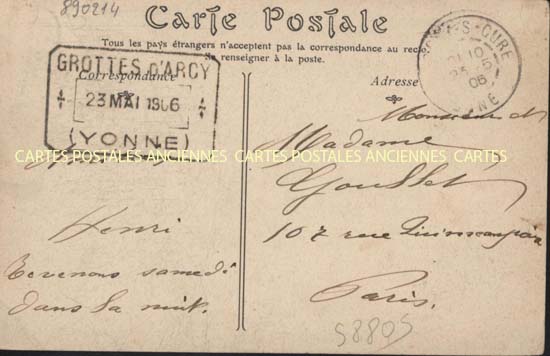 890214
Carte Postale
Tous les pays étrangers n'acceptent pas la correspondance au recto.
Se renseigner à la poste.
Correspondance
GROTTES D'ARCY
23 MAI 1906
(YONNE)
Henri
Revenons samedi
dans la nuit.
Adresse
SUR-CURE
23 -5
06
YONNE
Monsieur et
Madame
Gousset
107 rue Quincampoix
Paris.
58805
CARTES POSTALES ANCIENNES CARTES POSTALES ANCIENNES CARTES